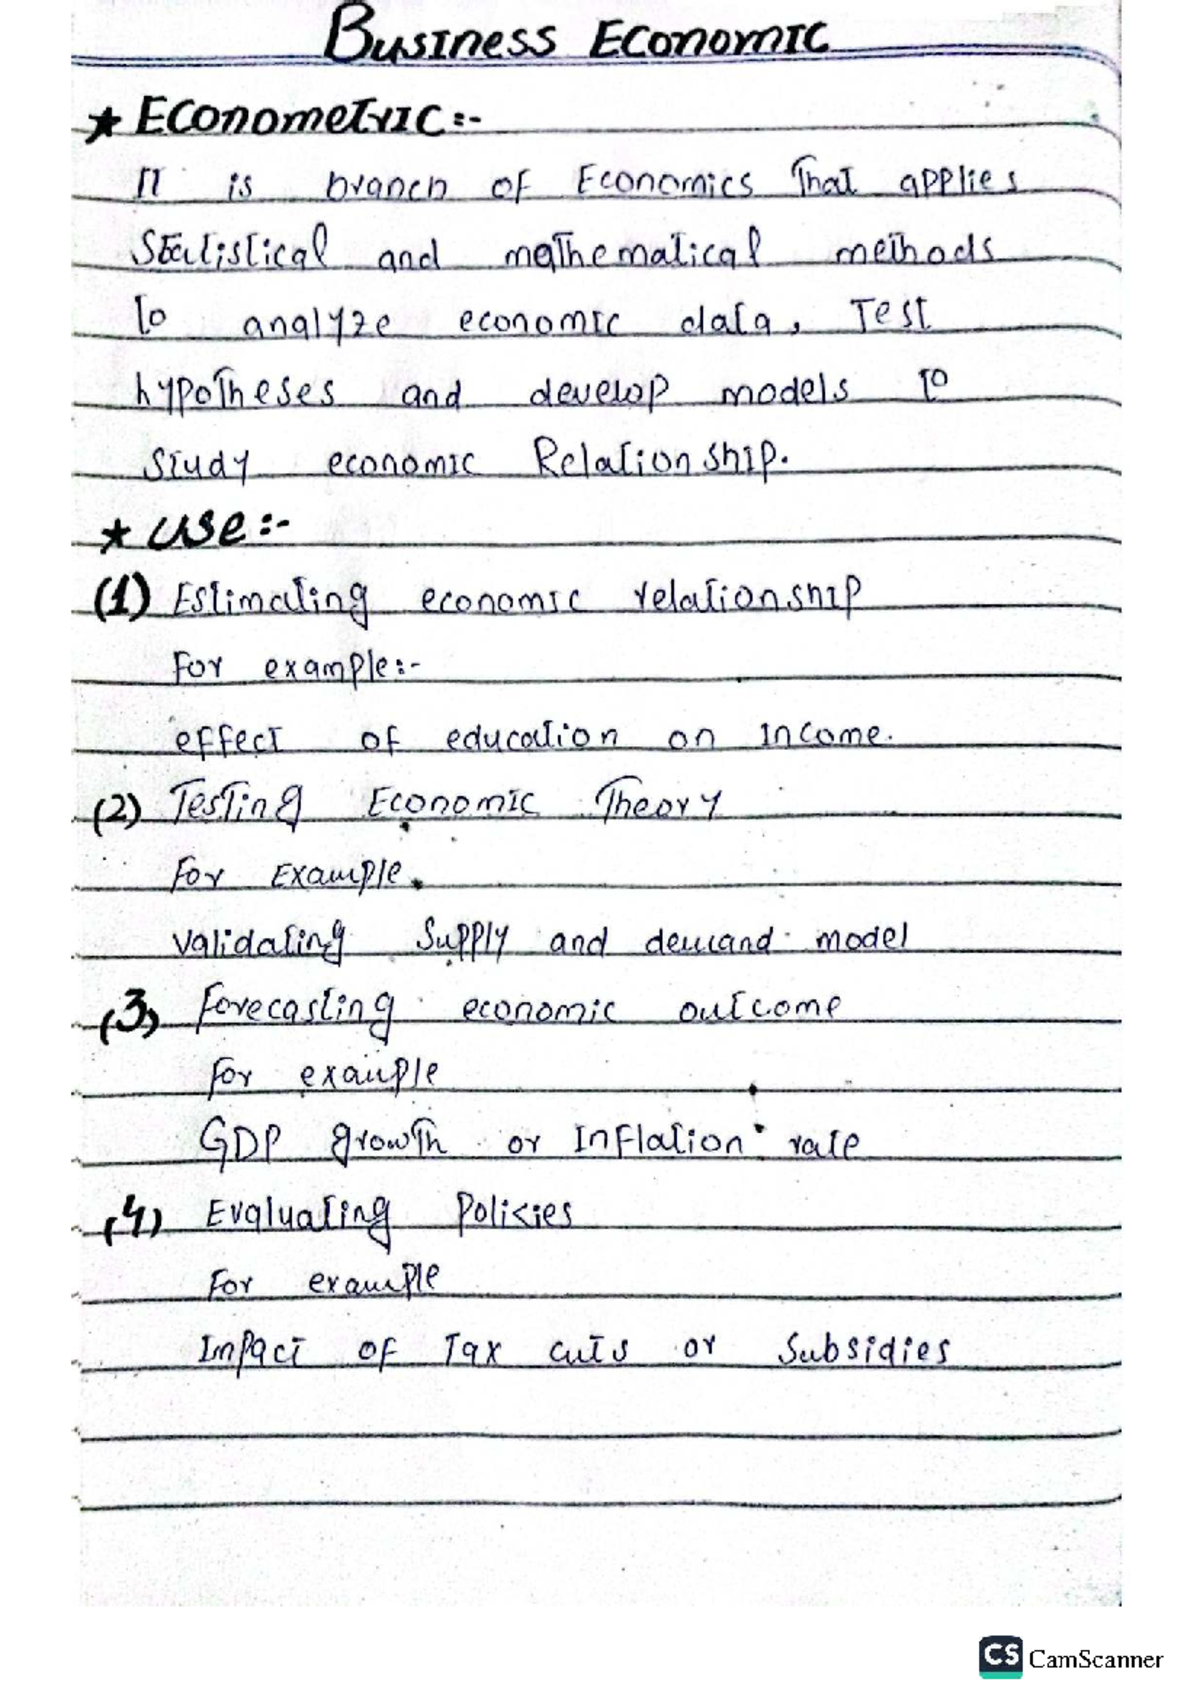 Business Economic
★ Econometric:-
It is branch of Economics That applies
Statistical and mathematical methods
to analyze economic data, Test
hypotheses and develop models to
study economic Relationship.
★ use:-
(1) Estimating economic relationship
For example:-
effect of education on Income.
(2) Testing Economic Theory
For Example.
validating Supply and demand model
(3) Forecasting economic outcome
For example
GDP growth or Inflation rate
(4) Evaluating Policies
For example
Impact of Tax cuts or Subsidies
CS CamScanner